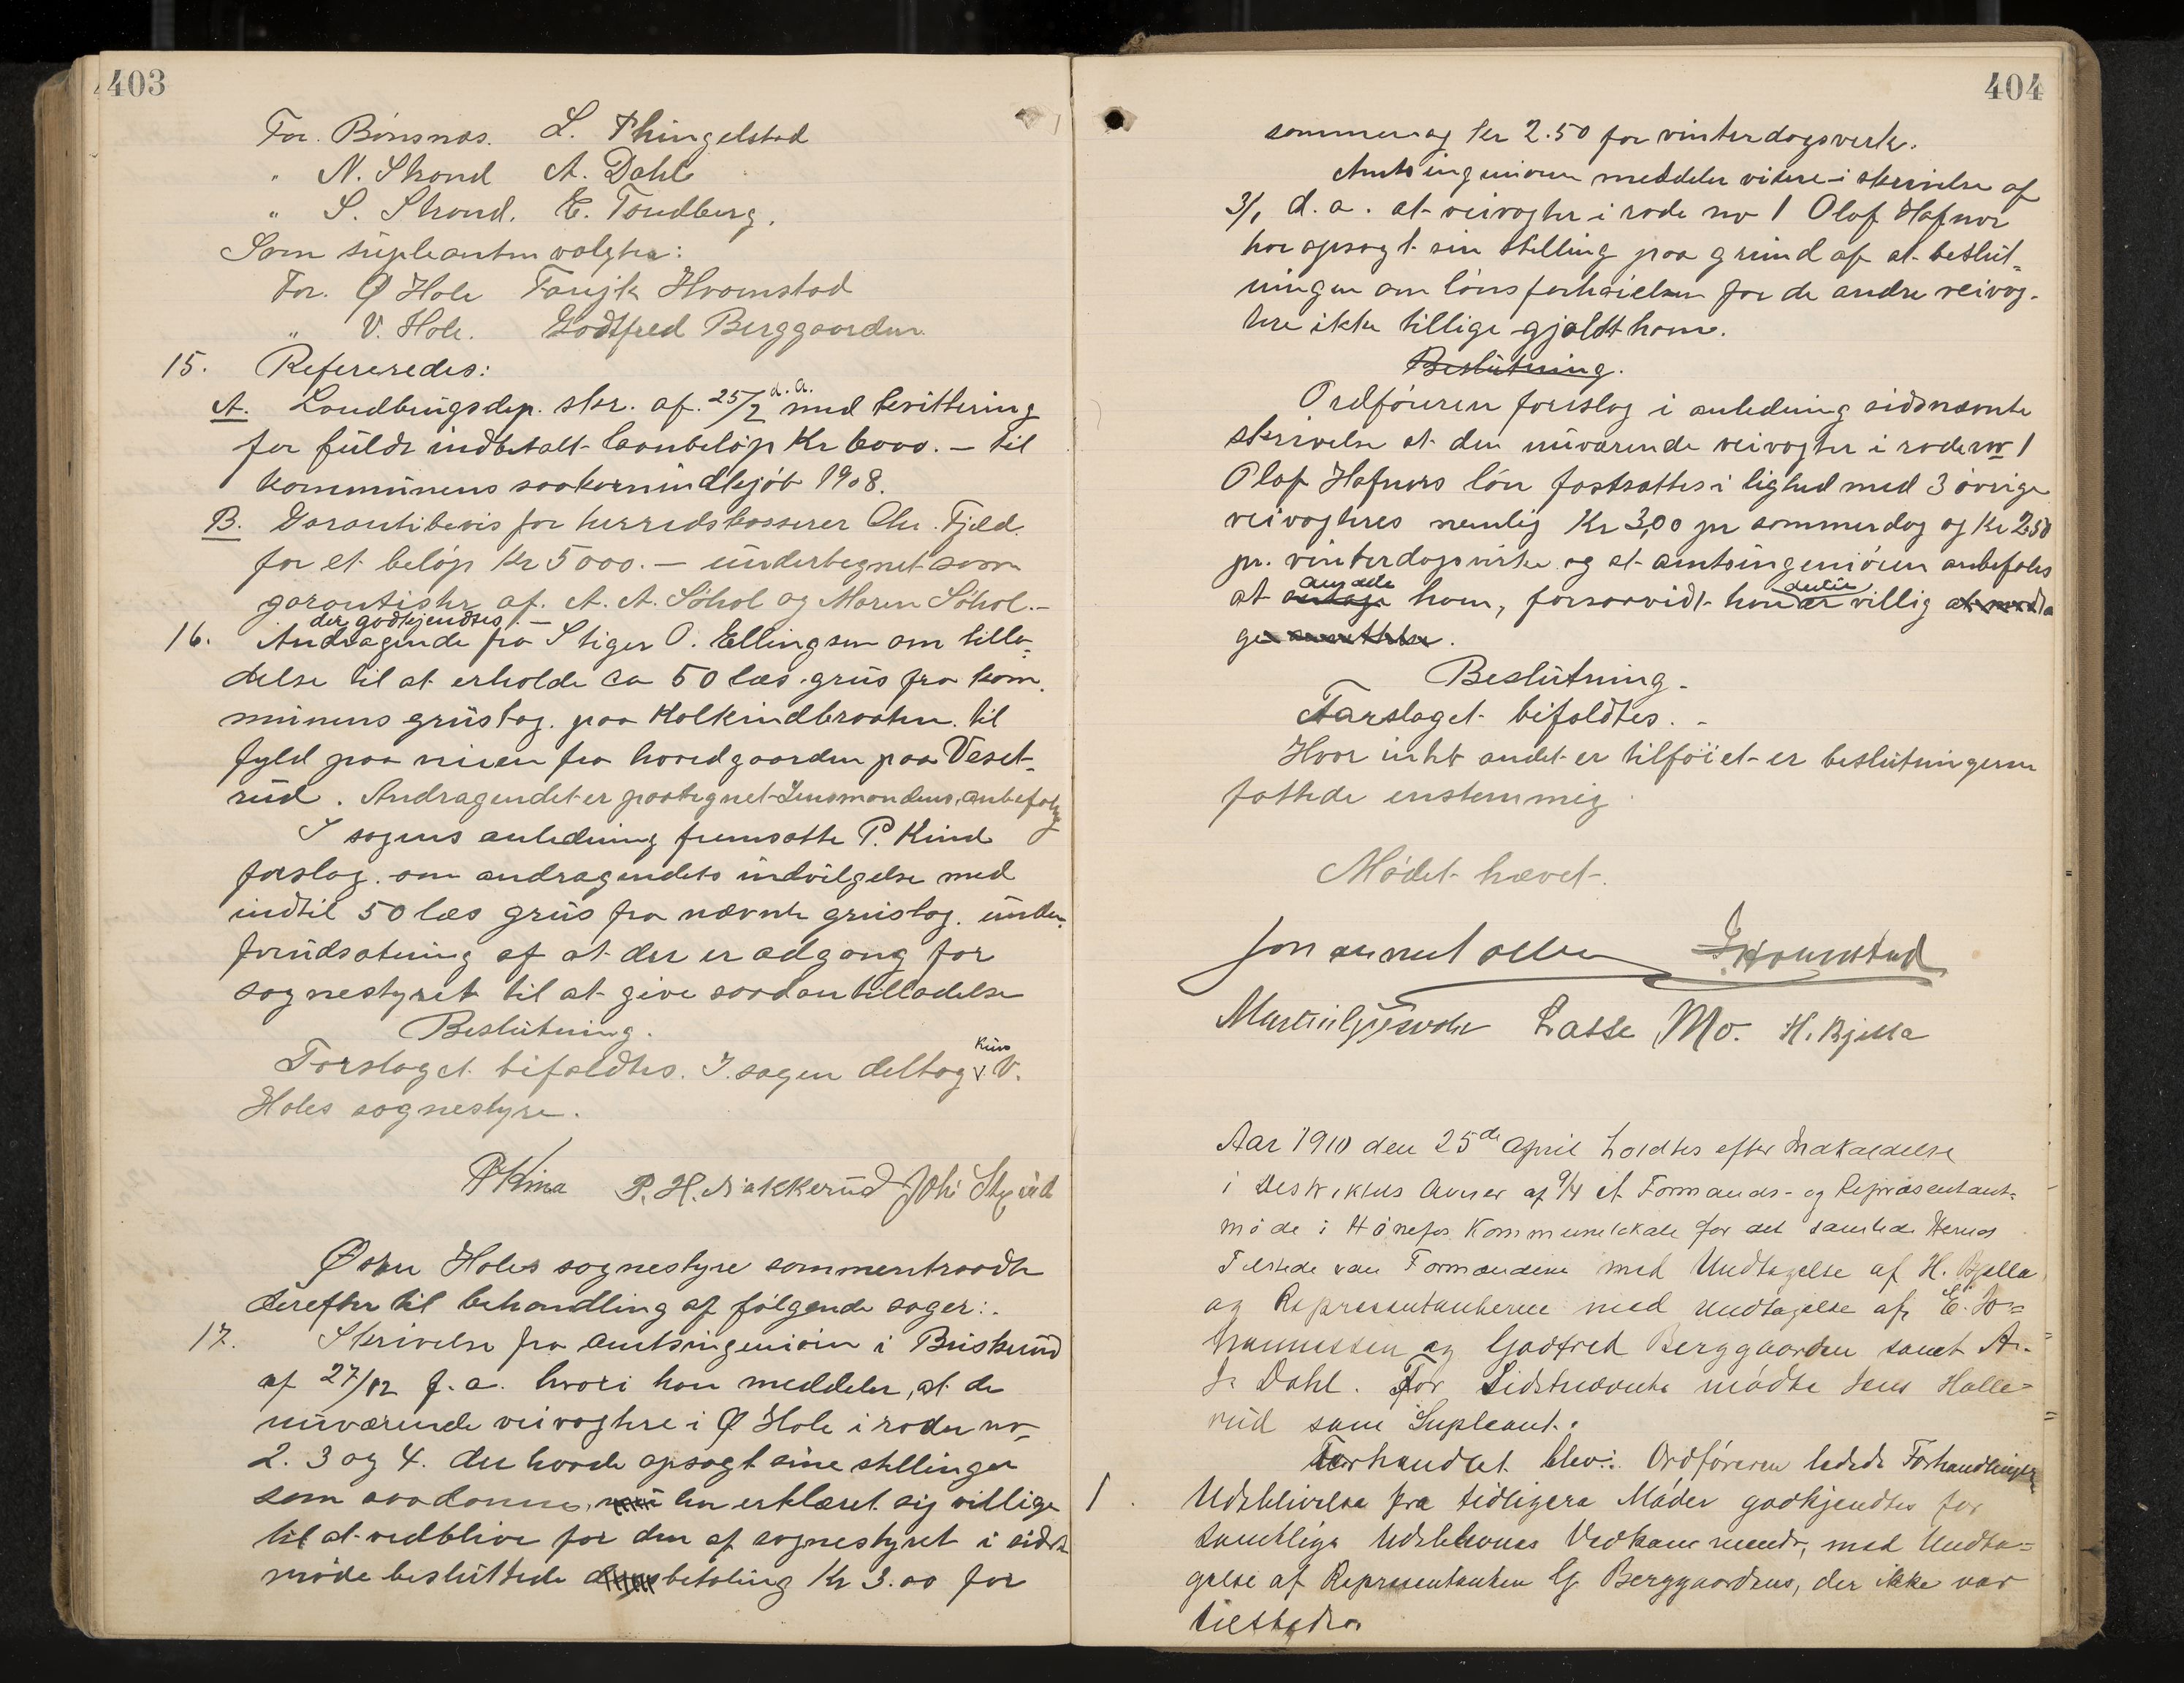 403
For. Bönsnæs. L. Thingelstad
" N. Strand A. Dahl
" S. Strand. E. Tandberg.
Som supleanter valgtes:
For. Ø Hole Hvamstad
" V. Hole. Godtfred Berggaarden
15. Refereredes:
A. Landbrugsdep. skr. af. 25/2 d.a. med kvittering
for fuldt indbetalt laanbeløp Kr 6000. — til
kommunens saakornindkjöb 1908.
B. Garantibevis for herredskasserer Chr. Fjeld
for et beløp Kr 5000. — undertegnet som
garantister af. A. A. Söhol og Maren Söhol. —
der godkjendtes. —
16. Andragende fra Stiger O. Ellingsen om tilla-
delse til at erholde ca 50 læs grus fra kom-
munens grustag. paa Kolkindbraaten. til
fyld paa veien fra hovedgaarden paa Veset-
rud. Andragendet er paategnet Lensmandens anbefaling
I sagens anledning fremsatte P. Kind
forslag. om andragendets indvilgelse med
indtil 50 læs grus fra nævnte grustag. under
forudsætning af at der er adgang for
sognestyret til at give saadan tilladelse
Beslutning.
Forslaget bifaldtes. I sagen deltog kun V.
Holes sognestyre.
P Kind P. H. Nakkerud Joh. 
Østre Holes sognestyre sammentraadte
derefter til behandling af følgende sager:.
17. Skrivelse fra amtsingeniören i Buskerud
af 27/12 f.a. hvori han meddeler, at de
nuværende veivogtere i Ø Hole i roder no
2. 3 og 4. der havde opsagt sine stillinger
som saadanne, har erklæret sig villige
til at vedblive for den af sognestyret i sidste
möde besluttede betaling Kr 3.00 for
404
sommer og kr 2.50 for vinterdagsverk.
Amtsingeniören meddeler videre i skrivelse af
3/1 d.a. at veivogter i rode no 1 Olaf Hafnor
har opsagt sin stilling paa grund af at beslut-
ningen om lönsforhöielsen for de andre veivog-
tere ikke tillige gjaldt ham.
Beslutning.
Ordföreren foreslog i anledning sidsnævnte
skrivelse at den nuværende veivogter i rode no 1
Olaf Hafnors lön fastsattes i lighed med 3 övrige
veivogteres nemlig Kr 3,00 pr sommerdag og Kr 2.50
pr. vinterdagsverk og at amtsingeniören anbefales
at ansætte ham, forsaavidt han dertil er villig
Beslutning.
Forslaget bifaldtes. -
Hvor intet andet er tilföiet er beslutningerne
fattede enstemmig.
Mödet hævet.
Hvamstad
Martin Gjesvold Lasse Mo. H. Bjella
Aar 1910 den 25de April holdtes efter Indkaldelse
i Distriktets Aviser af 9/4 et Formands- og Repræsentant-
möde i Hönefos Kommunelokale for det samlede Herred
Tilstede var Formændene med Undtagelse af H. Bjella
og Repræsentanterne med undtagelse af E. Jo-
hannessen og Godtfred Berggaarden samt A.
Dahl. For Sidstnævnte mödte Jens Halle-
rud som Supleant.
Forhandlet blev: Ordföreren ledede Forhandlingen
1. Udeblivelse fra tidligere Möder godkjendtes for
samtlige Udeblevnes Vedkommende, med Undta-
gelse af Repræsentanten G. Berggaarden, der ikke var
tilstede.